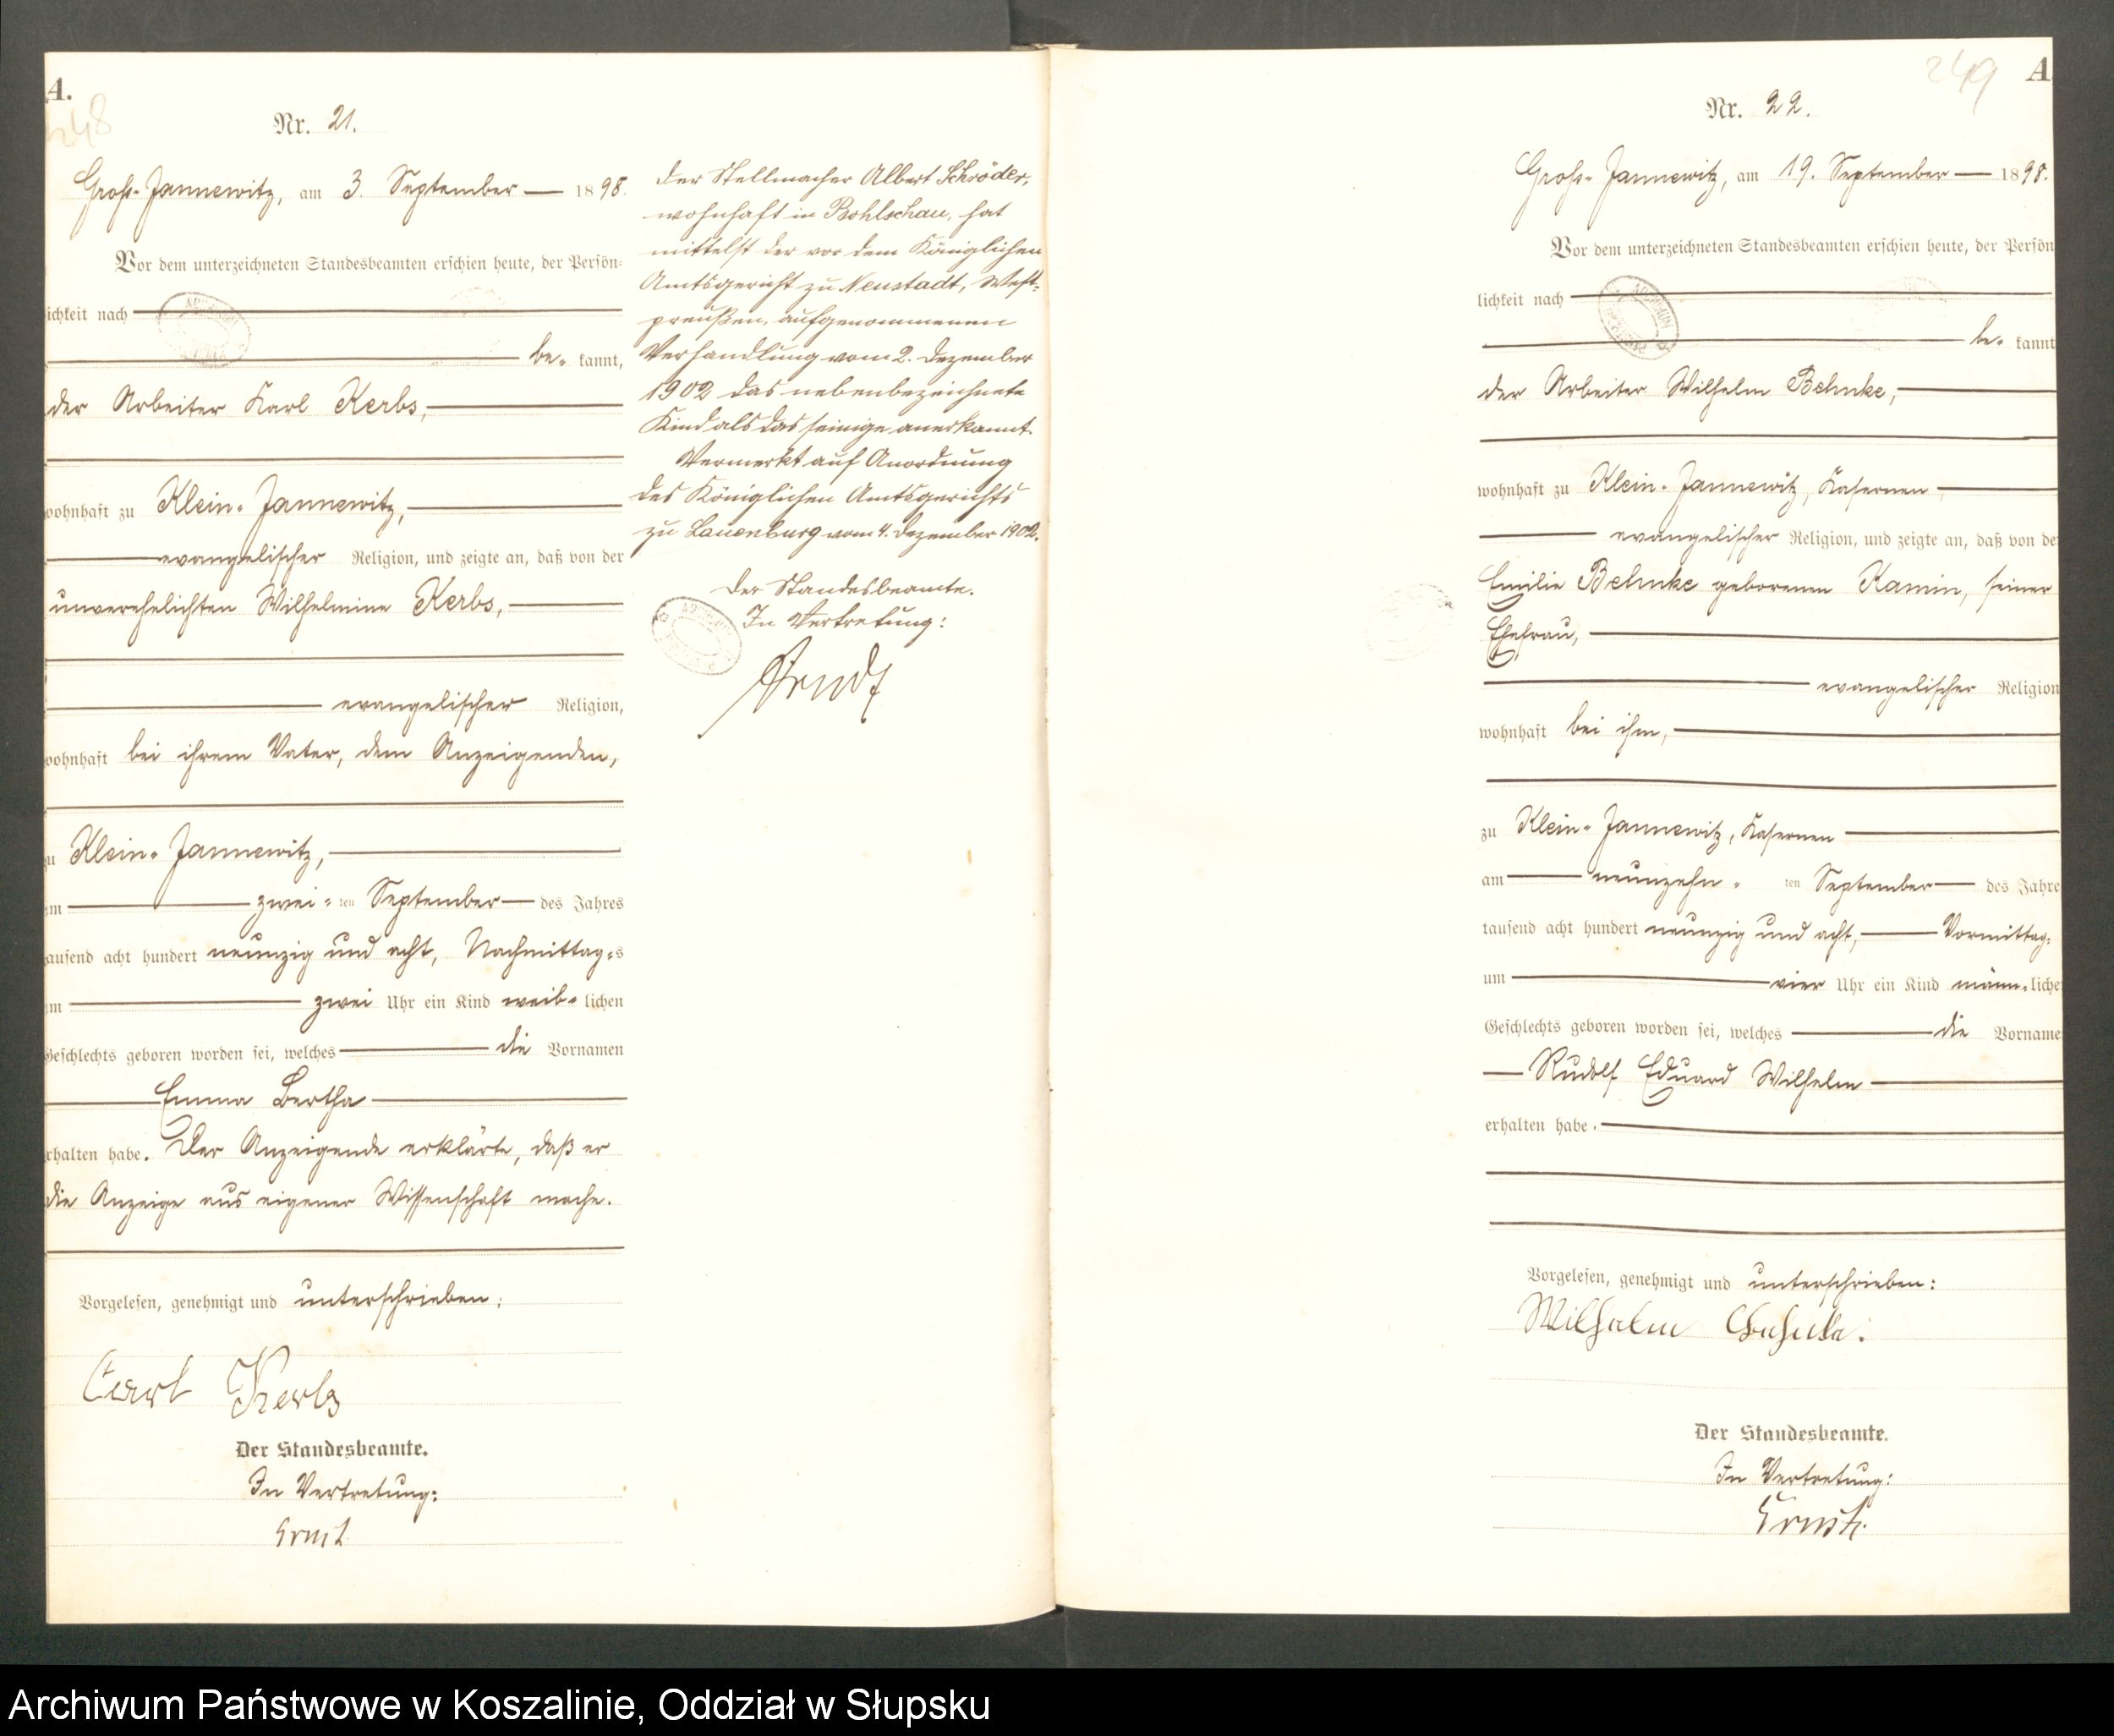 A.
248
Nr. 21.
Groß-Jannewitz, am 3. September 1898.
Vor dem unterzeichneten Standesbeamten erschien heute, der Persön-
lichkeit nach
be- kannt,
der Arbeiter Karl Kerbs,
wohnhaft zu Klein-Jannewitz,
evangelischer Religion, und zeigte an, daß von der
unverehelichten Wilhelmine Kerbs,
evangelischer Religion,
wohnhaft bei ihrem Vater, dem Anzeigenden,
zu Klein-Jannewitz,
am zwei-ten September des Jahres
tausend acht hundert neunzig und acht, Nachmittag-s
um zwei Uhr ein Kind weib-lichen
Geschlechts geboren worden sei, welches die Vornamen
Emma Bertha
erhalten habe. Der Anzeigende erklärte, daß er
die Anzeige aus eigener Wissenschaft mache.
Vorgelesen, genehmigt und unterschrieben:
Carl Kerbs
Der Standesbeamte.
In Vertretung:
Ernst
Der Stellmacher Albert Schröder,
wohnhaft in Bohlschau, hat
mittelst der vor dem Königlichen
Amtsgericht zu Neustadt, West-
preußen, aufgenommenen
Verhandlung vom 2. Dezember
1902 das nebenbezeichnete
Kind als das seinige anerkannt.
Vermerkt auf Anordnung
des Königlichen Amtsgerichts
zu Lauenburg vom 4. Dezember 1902.
Der Standesbeamte.
In Vertretung:
Arndt
249
A
Nr. 22.
Groß-Jannewitz, am 19. September 1898.
Vor dem unterzeichneten Standesbeamten erschien heute, der Persön
lichkeit nach
be- kannt
der Arbeiter Wilhelm Behnke,
wohnhaft zu Klein-Jannewitz, Kasernen
evangelischer Religion, und zeigte an, daß von de
Emilie Behnke geborenen Kamin, seiner
Ehefrau,
evangelischer Religion
wohnhaft bei ihm,
zu Klein-Jannewitz, Kasernen
am neunzehn- ten September des Jahre
tausend acht hundert neunzig und acht, Vormittag-
um vier Uhr ein Kind männ-liche
Geschlechts geboren worden sei, welches die Vorname
Rudolf Eduard Wilhelm
erhalten habe.
Vorgelesen, genehmigt und unterschrieben:
Wilhelm Behnke.
Der Standesbeamte.
In Vertretung:
Ernst.
Archiwum Państwowe w Koszalinie, Oddział w Słupsku